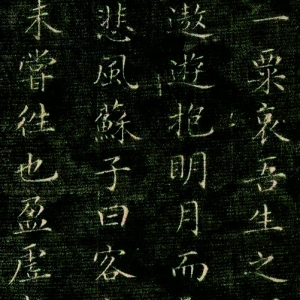 一粟哀吾生之
遨遊抱明月而
悲風蘇子曰客
未嘗徃也盈虚